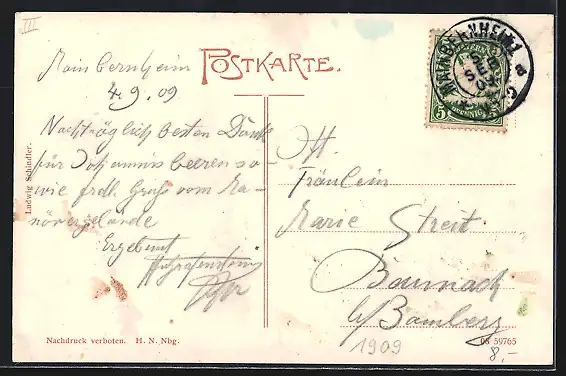 III
POSTKARTE.
MAINBERNHEIM
SEP
09
5 5
PFENNIG
Mainbernheim
4.9.09
Nachträglich besten Dank
für Johannisbeeren so-
wie frdl. Gruß vom Ma-
növergelände
Ergebenst
Ludwig Schindler.
Frl.
Fräulein
Marie Streit
Baunach
b/ Bamberg
1909
Nachdruck verboten. H. N. Nbg.
08 59765
8,-